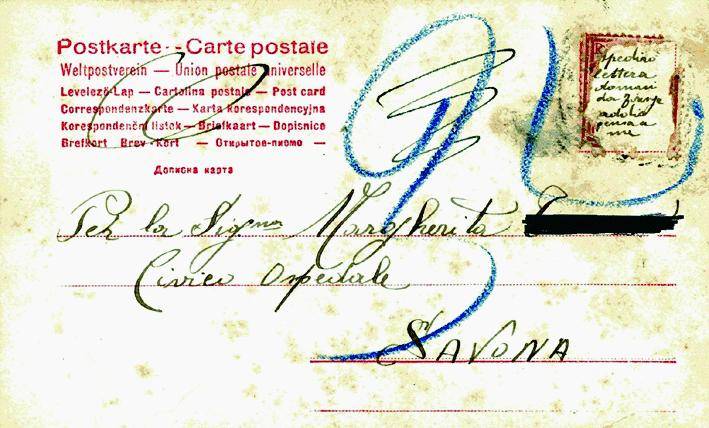 Postkarte - Carte postale
Weltpostverein — Union postale universelle
Levelező-Lap — Cartolina postale — Post card
Correspondenzkarte — Karta korespondencyjna
Korespondenční lístek — Briefkaart — Dopisnice
Brefkort Brev-Kort — Открытое-писмо —
Дописна карта
spedirò
lettera
doman
da
pensa a
me
Per la Sigma Margherita
Civico Ospedale
SAVONA